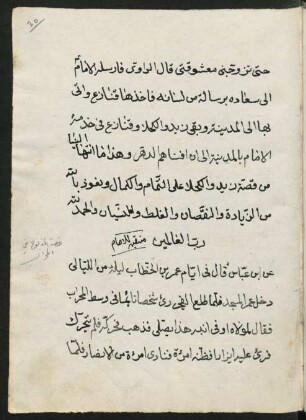 حتى تزوجني معشوقتي قال الراوي فارسله الامام
الى سعاده برسالة من لسانه فاخذها قنازع واتى
بها الى المدينة وبقى زيد والكحلا وقنازع في خدمة
الامام بالمدينة الى ان افناهم الدهر وهذا ما انتها الينا
من قصة زيد والكحلا على التمام والكمال ونعوذ بالله
من الزيادة والنقصان والغلط والنسيان والحمد لله
رب العالمين منقبة للامام
عن ابن عباس قال في ايام عمر بن الخطاب ليلة من الليالي
دخل عمر المسجد فلما طلع الفجر رئى شخصا نائما في وسط المحراب
فقال لمولاه اوفى انبه هذا يصلي فذهب فحركه فلم يتحرك
فرئ عليه ازار فظنه امرءة فنادى امرءة من الانصار فلما